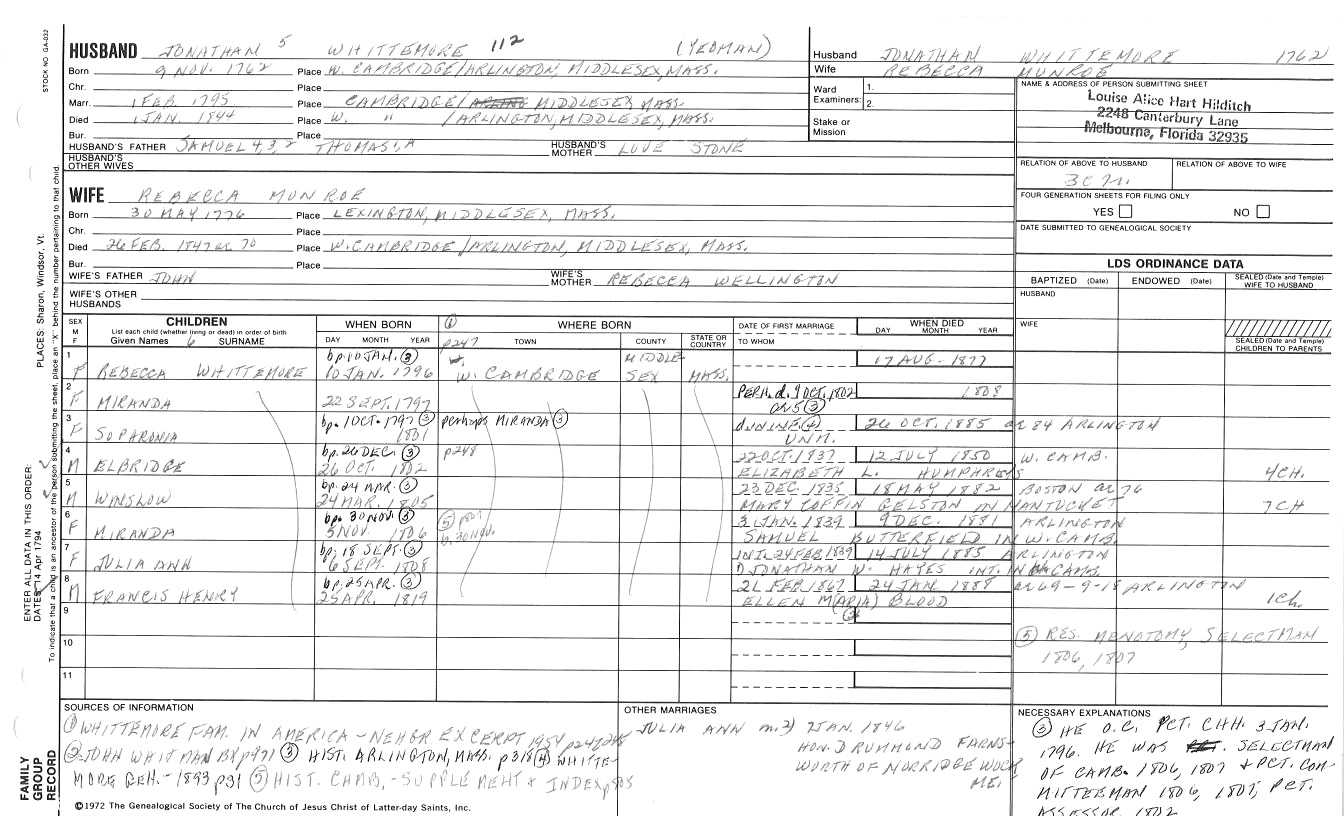 STOCK NO GA-032
HUSBAND JONATHAN 5 WHITTEMORE 112 (YEOMAN)
Born 9 NOV. 1762 Place W. CAMBRIDGE/ARLINGTON, MIDDLESEX, MASS.
Chr. Place
Marr. 1 FEB. 1795 Place CAMBRIDGE/ARLING MIDDLESEX MASS.
Died 1 JAN. 1844 Place W. " /ARLINGTON, MIDDLESEX, MASS.
Bur. Place
HUSBAND'S FATHER SAMUEL 4, 3, 2 THOMAS 1, A HUSBAND'S MOTHER LOVE STONE
HUSBAND'S OTHER WIVES
Husband JONATHAN WHITTEMORE 1762
Wife REBECCA MUNROE
Ward 1.
Examiners: 2.
Stake or Mission
NAME & ADDRESS OF PERSON SUBMITTING SHEET
Louise Alice Hart Hilditch
2248 Canterbury Lane
Melbourne, Florida 32935
RELATION OF ABOVE TO HUSBAND RELATION OF ABOVE TO WIFE
FOUR GENERATION SHEETS FOR FILING ONLY
YES NO
DATE SUBMITTED TO GENEALOGICAL SOCIETY
WIFE REBECCA MUNROE
Born 30 MAY 1776 Place LEXINGTON, MIDDLESEX, MASS.
Chr. Place
Died 26 FEB. 1847 ae 70 Place W. CAMBRIDGE/ARLINGTON, MIDDLESEX, MASS.
Bur. Place
WIFE'S FATHER JOHN WIFE'S MOTHER REBECCA WELLINGTON
WIFE'S OTHER HUSBANDS
LDS ORDINANCE DATA
BAPTIZED (Date) ENDOWED (Date) SEALED (Date and Temple) WIFE TO HUSBAND
HUSBAND
WIFE
SEALED (Date and Temple) CHILDREN TO PARENTS
SEX M F
CHILDREN
List each child (whether living or dead) in order of birth
Given Names 6 SURNAME
WHEN BORN DAY MONTH YEAR
① WHERE BORN
p247 TOWN COUNTY STATE OR COUNTRY
DATE OF FIRST MARRIAGE TO WHOM
WHEN DIED DAY MONTH YEAR
1 bp. 10 JAN. ③ MIDDLE 17 AUG. 1877
F REBECCA WHITTEMORE 10 JAN. 1796 W. CAMBRIDGE SEX MASS.
2 PERH. d. 9 OCT. 1802 1808
F MIRANDA 22 SEPT. 1797 ae 5 ③
3 bp. 1 OCT. 1797 ③ perhaps MIRANDA ③ 26 OCT. 1885 ae 84 ARLINGTON
F SOPHRONIA 1801 UNM.
4 bp. 26 DEC. ③ p248 22 OCT. 1837 12 JULY 1850 W. CAMB.
M ELBRIDGE 26 OCT. 1802 ELIZABETH L. HUMPHREYS 4 CH.
5 bp. 24 APR. ③ 23 DEC. 1835 18 MAY 1882 BOSTON ae 76
M WINSLOW 24 MAR. 1805 MARY COFFIN GELSTON IN NANTUCKET 7 CH
6 bp. 30 NOV. ③ ⑤ 3 JAN. 1839 9 DEC. 1881 ARLINGTON
F MIRANDA 5 NOV. 1806 b. 30 NOV. SAMUEL BUTTERFIELD IN W. CAMB.
7 bp. 18 SEPT. ③ INT. 24 FEB 1839 14 JULY 1885 ARLINGTON
F JULIA ANN 6 SEPT. 1808 1) JONATHAN W. HAYES INT. IN W. CAMB.
8 bp. 25 APR. ③ 21 FEB 1867 24 JAN. 1888 ae 69-9-18 ARLINGTON
M FRANCIS HENRY 25 APR. 1819 ELLEN M(ARIA) BLOOD 1 Ch.
②
9
10
11
⑤ RES. MENOTOMY, SELECTMAN
1806, 1807
SOURCES OF INFORMATION
① WHITTEMORE FAM. IN AMERICA - NEHGR EXCERPT 1954
② JOHN WHITMAN BX p971 ③ HIST. ARLINGTON, MASS. p318 ④ WHITTE-
MORE GEN. - 1893 p31 ⑤ HIST. CAMB. - SUPPLEMENT & INDEX
OTHER MARRIAGES
JULIA ANN m. 2) 7 JAN. 1846
HON. DRUMMOND FARNS-
WORTH OF NORRIDGEWOCK
ME.
NECESSARY EXPLANATIONS
③ HE O.C. PCT. CHH. 3 JAN.
1796. HE WAS SELECTMAN
OF CAMB. 1806, 1807 & PCT. COM-
MITTEEMAN 1806, 1807, PCT.
ASSESSOR 1802
©1972 The Genealogical Society of The Church of Jesus Christ of Latter-day Saints, Inc.
FAMILY GROUP RECORD
ENTER ALL DATA IN THIS ORDER:
DATES: 14 Apr 1794
PLACES: Sharon, Windsor, Vt.
To indicate that a child is an ancestor of the person submitting the sheet, place an "X" behind the number pertaining to that child.